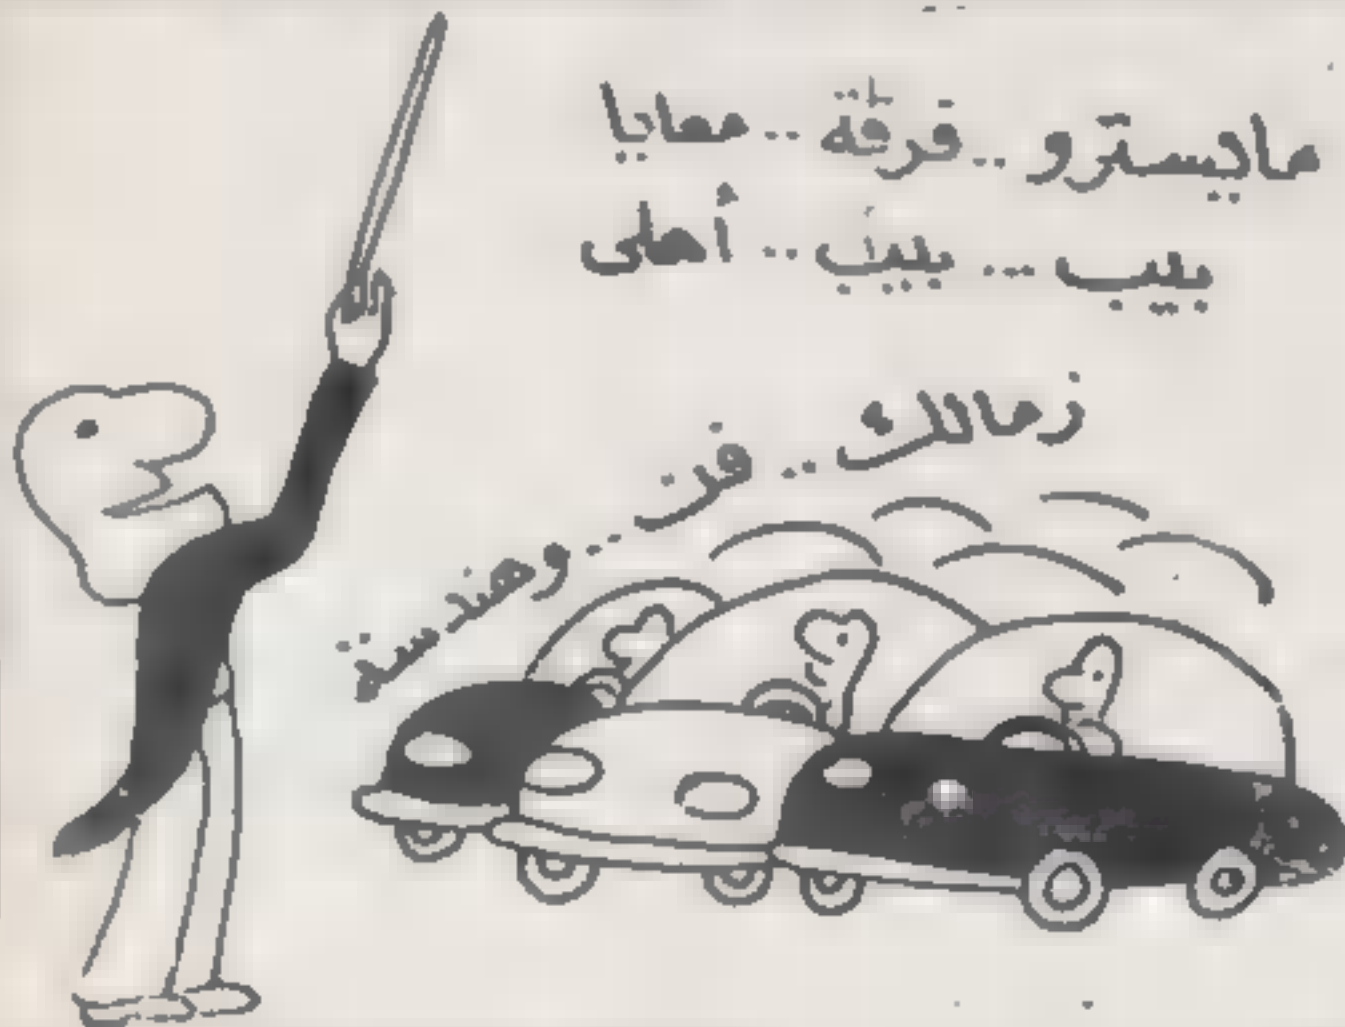 مايسترو .. فرقة .. معايا
بيب ... بيب .. أهلى
زمالك .. فن .. وهندسة